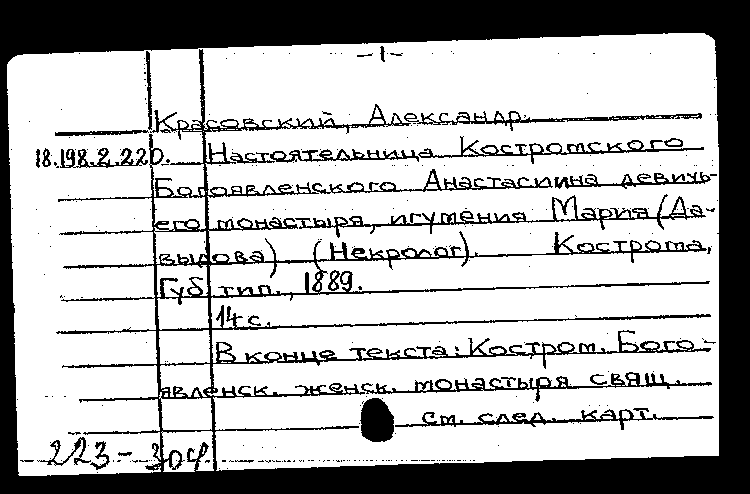 -1-
Красовский, Александр.
18.198.2.220. Настоятельница Костромского
Богоявленского Анастасиина девичь-
его монастыря, игумения Мария (Да-
выдова) (Некролог). Кострома,
Губ. тип., 1889.
14 с.
В конце текста: Костром. Бого-
явленск. женск. монастыря свящ.
см. след. карт.
223-